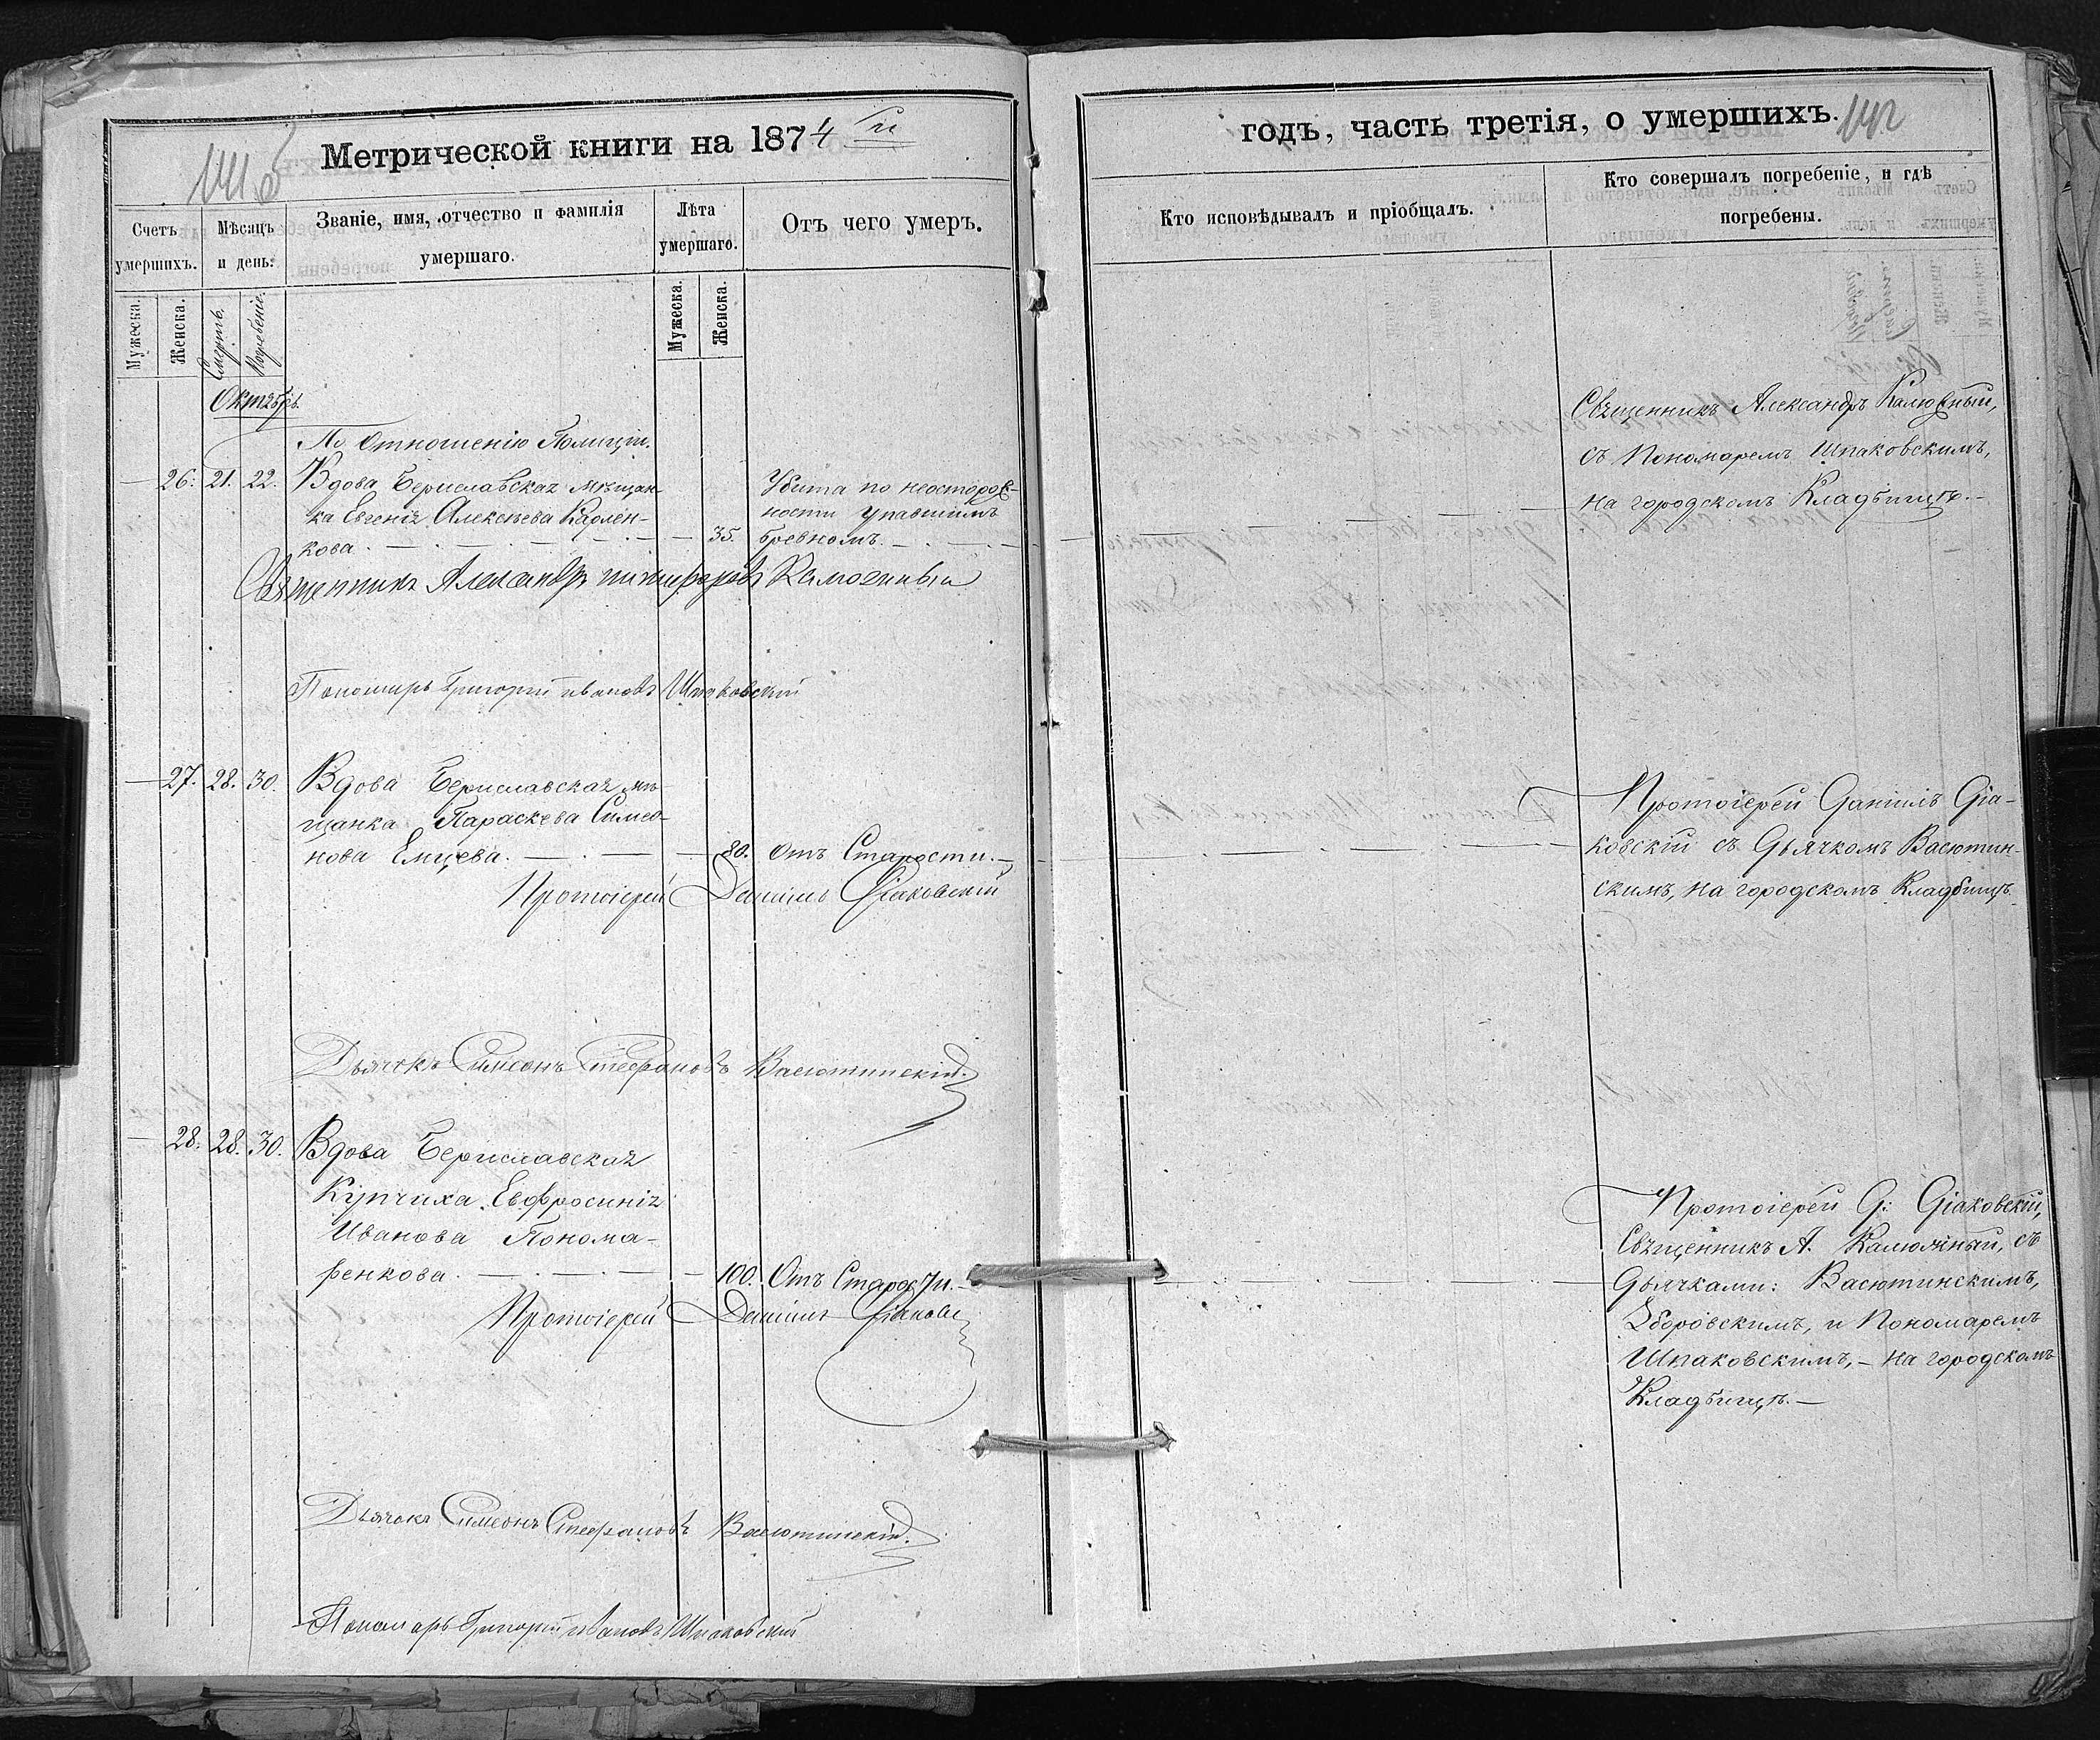 141 об
Метрической книги на 1874 й
Счетъ умершихъ.
Мѣсяцъ и день.
Званіе, имя, отчество и фамилія умершаго.
Лѣта умершаго.
Отъ чего умеръ.
Мужеска.
Женска.
Смерть.
Погребеніе.
Мужеска.
Женска.
Октябрь.
По отношенію Полиціи.
— 26. 21. 22. Вдова Бериславская мѣщан-
ка Евгенія Алексѣева Карлен-
кова. — 35.
Убита по неосторож-
ности упавшимъ
бревномъ. —
Священникъ Александръ Никифоровъ Калюжный
Пономарь Григорій Ивановъ Шпаковскій
— 27. 28. 30. Вдова Бериславская мѣ-
щанка Параскева Симео-
нова Емцева. — 80. Отъ Старости. —
Протоіерей Даніилъ Діаковскій
Дьячокъ Симеонъ Стефановъ Васютинскій.
— 28. 28. 30. Вдова Бериславская
Купчиха Евфросинія
Иванова Понома-
ренкова. — 100. Отъ Старости. —
Протоіерей Даніилъ Діаковскі
Дьячокъ Симеонъ Стефановъ Васютинскій.
Пономарь Григорій Ивановъ Шпаковскій
годъ, часть третія, о умершихъ. 142
Кто исповѣдывалъ и пріобщалъ.
Кто совершалъ погребеніе, и гдѣ
погребены.
Священникъ Александръ Калюжный,
съ Пономаремъ Шпаковскимъ,
на городскомъ Кладбищѣ. —
Протоіерей Даніилъ Діа-
ковскій съ Дьячкомъ Васютин-
скимъ, на городскомъ Кладбищѣ.
Протоіерей Д: Діаковскій,
Священникъ А. Калюжный, съ
Дьячками: Васютинскимъ,
Зборовскимъ, и Пономаремъ
Шпаковскимъ, — на городскомъ
Кладбищѣ. —